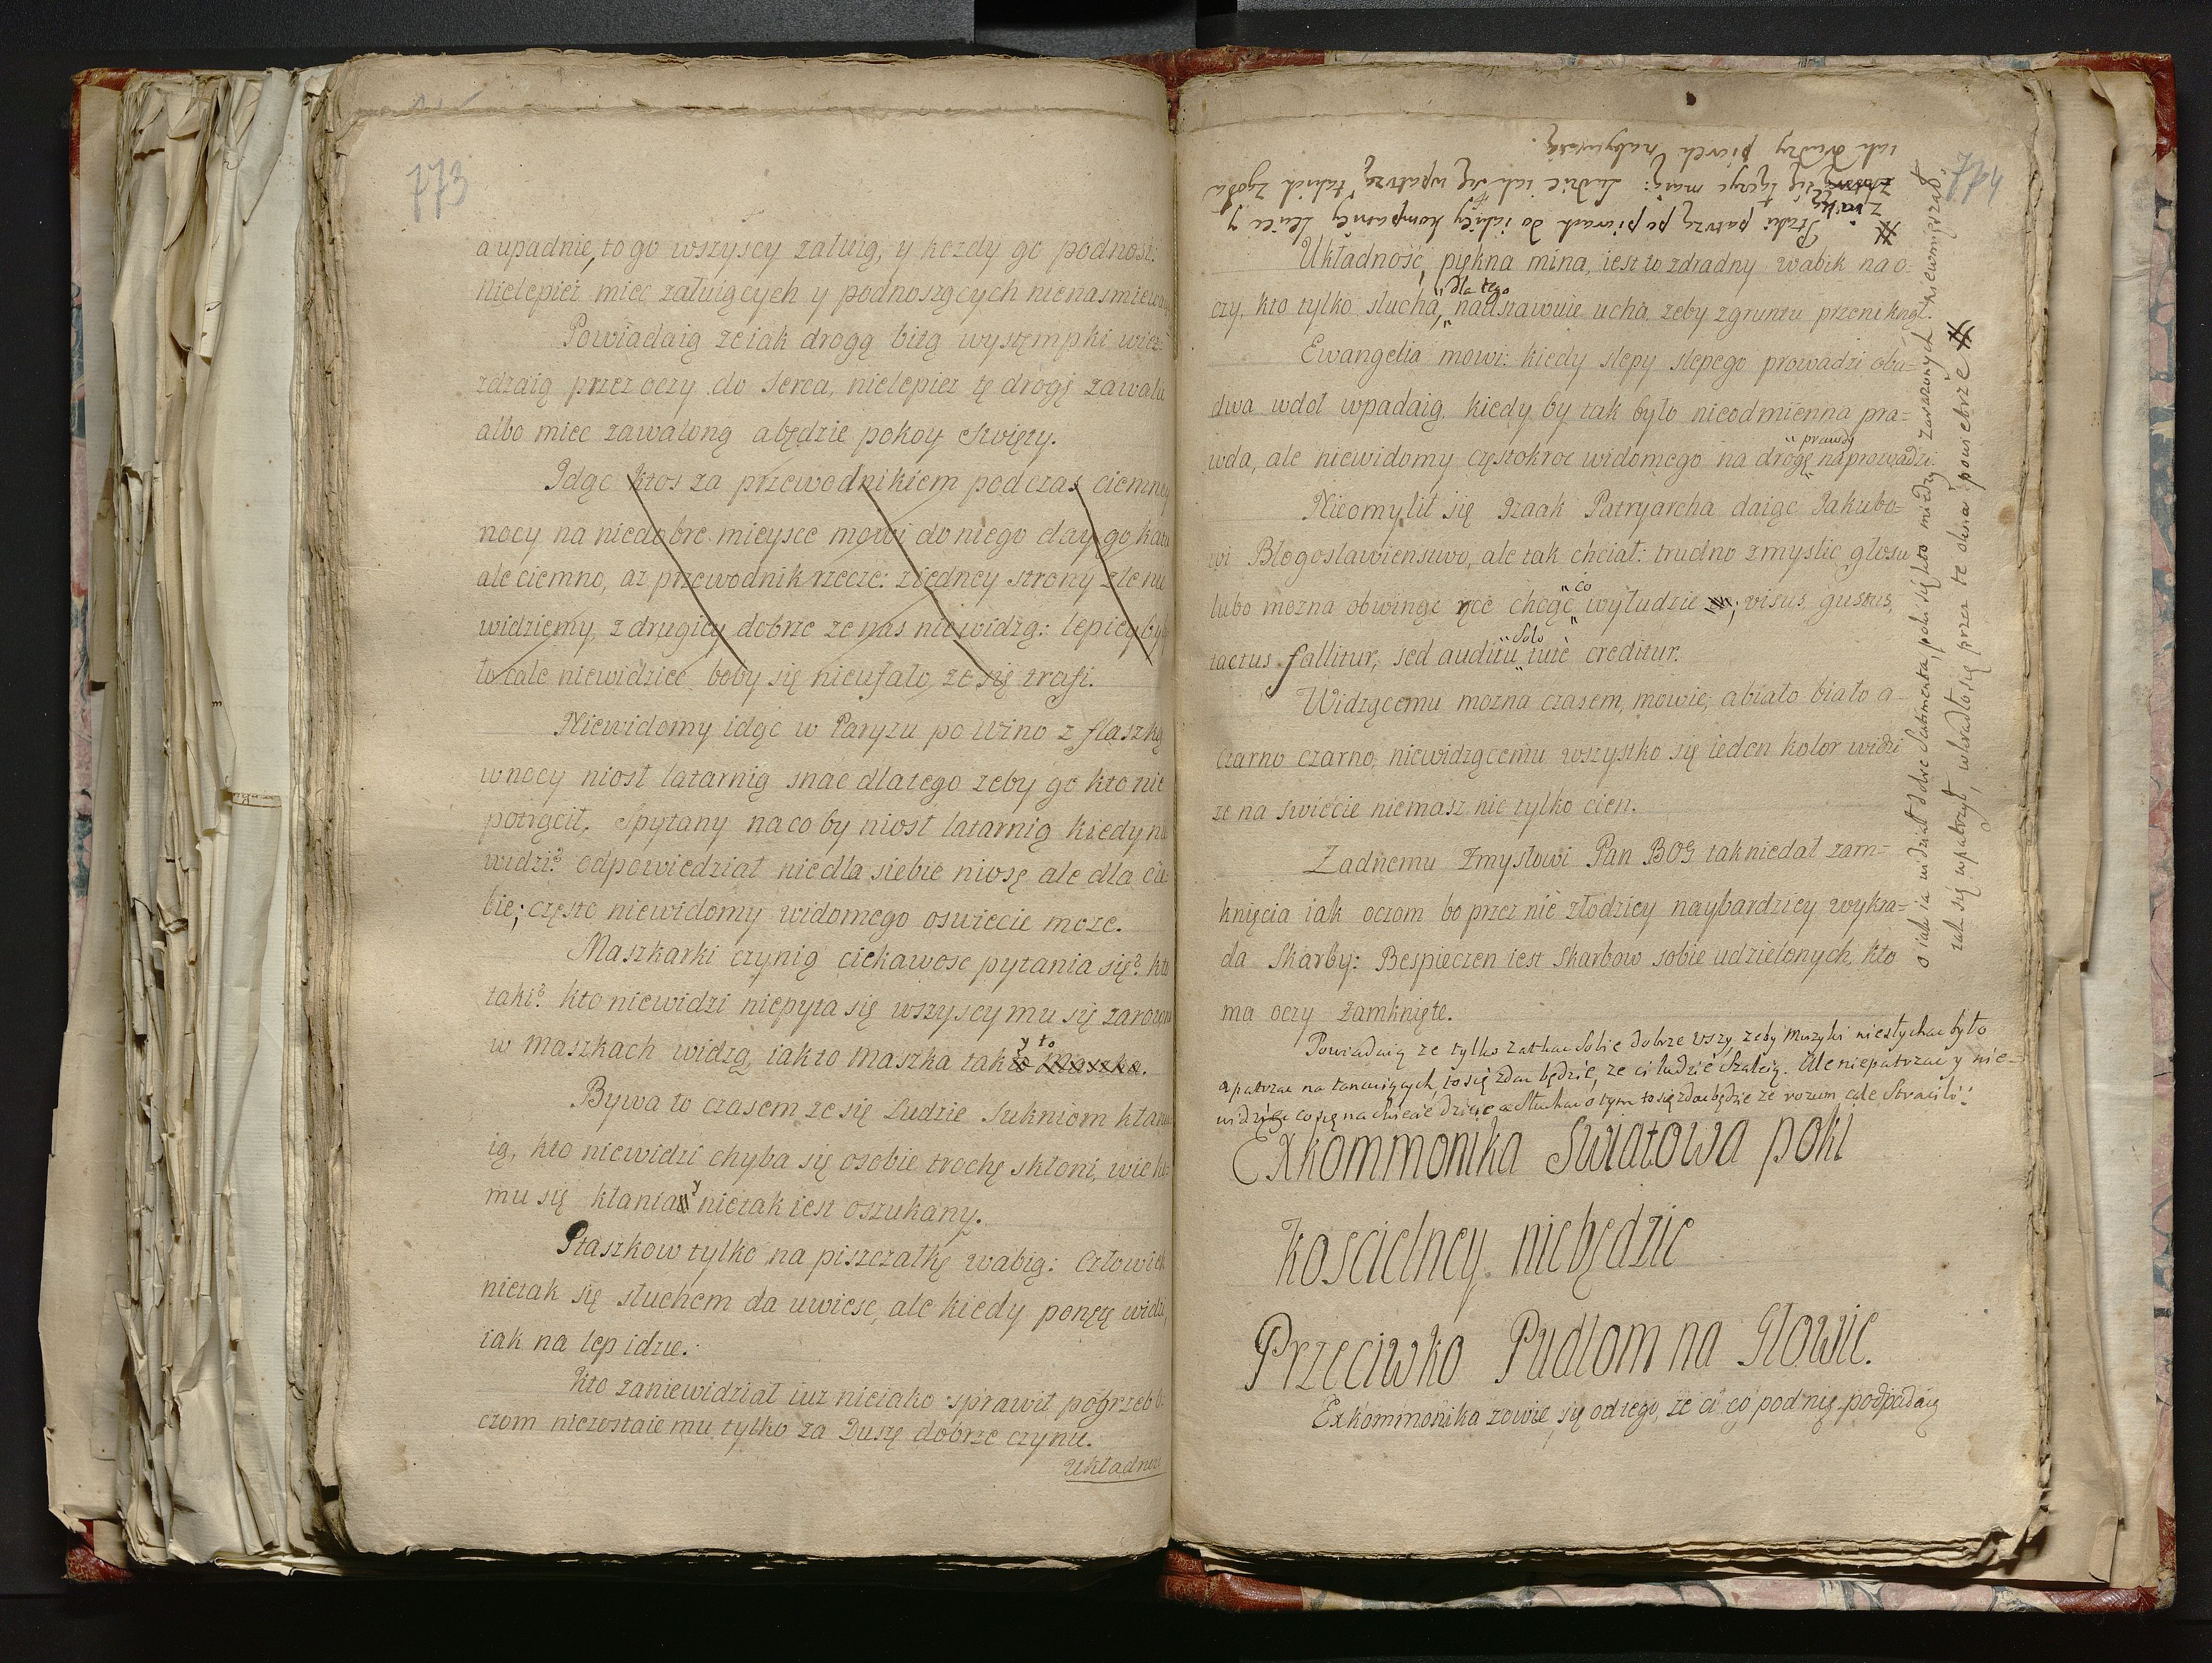 773
a upadnie, to go wszyscy załuią, y kozdy go podnosi:
nielepiei miec załuiących y podnoszących nienasmiew
Powiadaią ze iak drogą bitą wystempki wiez-
zdzaią przez oczy do serca, nielepiez tę drogę zawala
albo miec zawaloną a będzie pokoy swięty.
Idąc ktos za przewodnikiem podczas ciemney
nocy na niedobre mieysce mowi do niego day go katu
ale ciemno, az przewodnik rzecze: ziedney strony zle nie
widziemy, z drugiey dobrze ze nas nie widzą: lepiey by
to cale niewidziec boby się nieufało, ze się trafi.
Niewidomy idąc w Paryzu po Wino z flaszką
w nocy niosł latarnią snac dlatego zeby go kto nie
potrącił. Spytany naco by niosł latarnią kiedy nie
widzi? odpowiedział niedla siebie niosę ale dla cie-
bie; często niewidomy widomego oswiecic moze.
Maszkarki czynią ciekawosc pytania się? kto
taki? kto niewidzi niepyta się wszyscy mu się zarowno
w maszkach widzą, iak to maszka tak y to maszka.
Bywa to czasem ze się Ludzie Sukniom kłania-
ią, kto niewidzi chyba się osobie trochę skłoni, wie ko-
mu się kłania y nietak iest oszukany.
Ptaszkow tylko na piszczałkę wabią: Człowiek
nietak się słuchem da uwiesc, ale kiedy ponętę widzi,
iak na lep idzie.
Kto zaniewidział iuz nieiako sprawił pogrzeb o-
czom niezostaie mu tylko za Duszę dobrze czynic.
Układnosc
Ptaki patrzą po piorach do iakiey kompaniey zleciec y
z iaką się łączyc maią: Ludzie iak się wpatrzą takich zgoła
iak widzą piorek nabywaią.
Układność, piękna mina, iest to zdradny wabik na o-
czy, kto tylko słucha, dla tego nadstawuie ucha, zeby zgruntu przenikngł.
Ewangelia mowi: kiedy slepy slepego prowadzi oba-
dwa wdoł wpadaią, kiedy by tak było nieodmienna pra-
wda, ale niewidomy częstokroc widomego na drogę prawdy naprowadzi.
Nieomylił się Izaak Patryarcha daiąc Jakubo-
wi Błogosławienstwo, ale tak chciał: trudno zmyslic głosu
lubo mozna obwinąc ręce chcąc co wyłudzic; visus, gustus,
tactus fallitur, sed auditu solo tute creditur.
Widzącemu mozna czasem mowic; a biało biało a-
czarno czarno, niewidzącemu wszystko się ieden kolor widzi
ze na swiecie niemasz nic tylko cien.
Zadnemu Zmysłowi Pan BOG tak niedał zam-
knięcia iak oczom bo przez nie złodziey naybardziey wykra-
da Skarby: Bespieczen iest Skarbow sobie udzielonych, kto
ma oczy zamknięte.
Powiadaią ze tylko zatkac sobie dobrze uszy, zeby muzyki niesłychac było
a patrzac na tancuiących, to się zdac będzie, ze ci ludzie szaleią. Ale niepatrzac y nie-
widząc co się na swiecie dzieie a słuchac o tym to się zdac będzie ze rozum cale stracili:
Exkommonika Swiatowa poki
Koscielney niebędzie
Przeciwko Pudłom na Głowie.
Exkommonika zowie się od tego, ze ci co pod nię podpadaią
zak się wpatrzył, wkradło się przez te okna powietrze